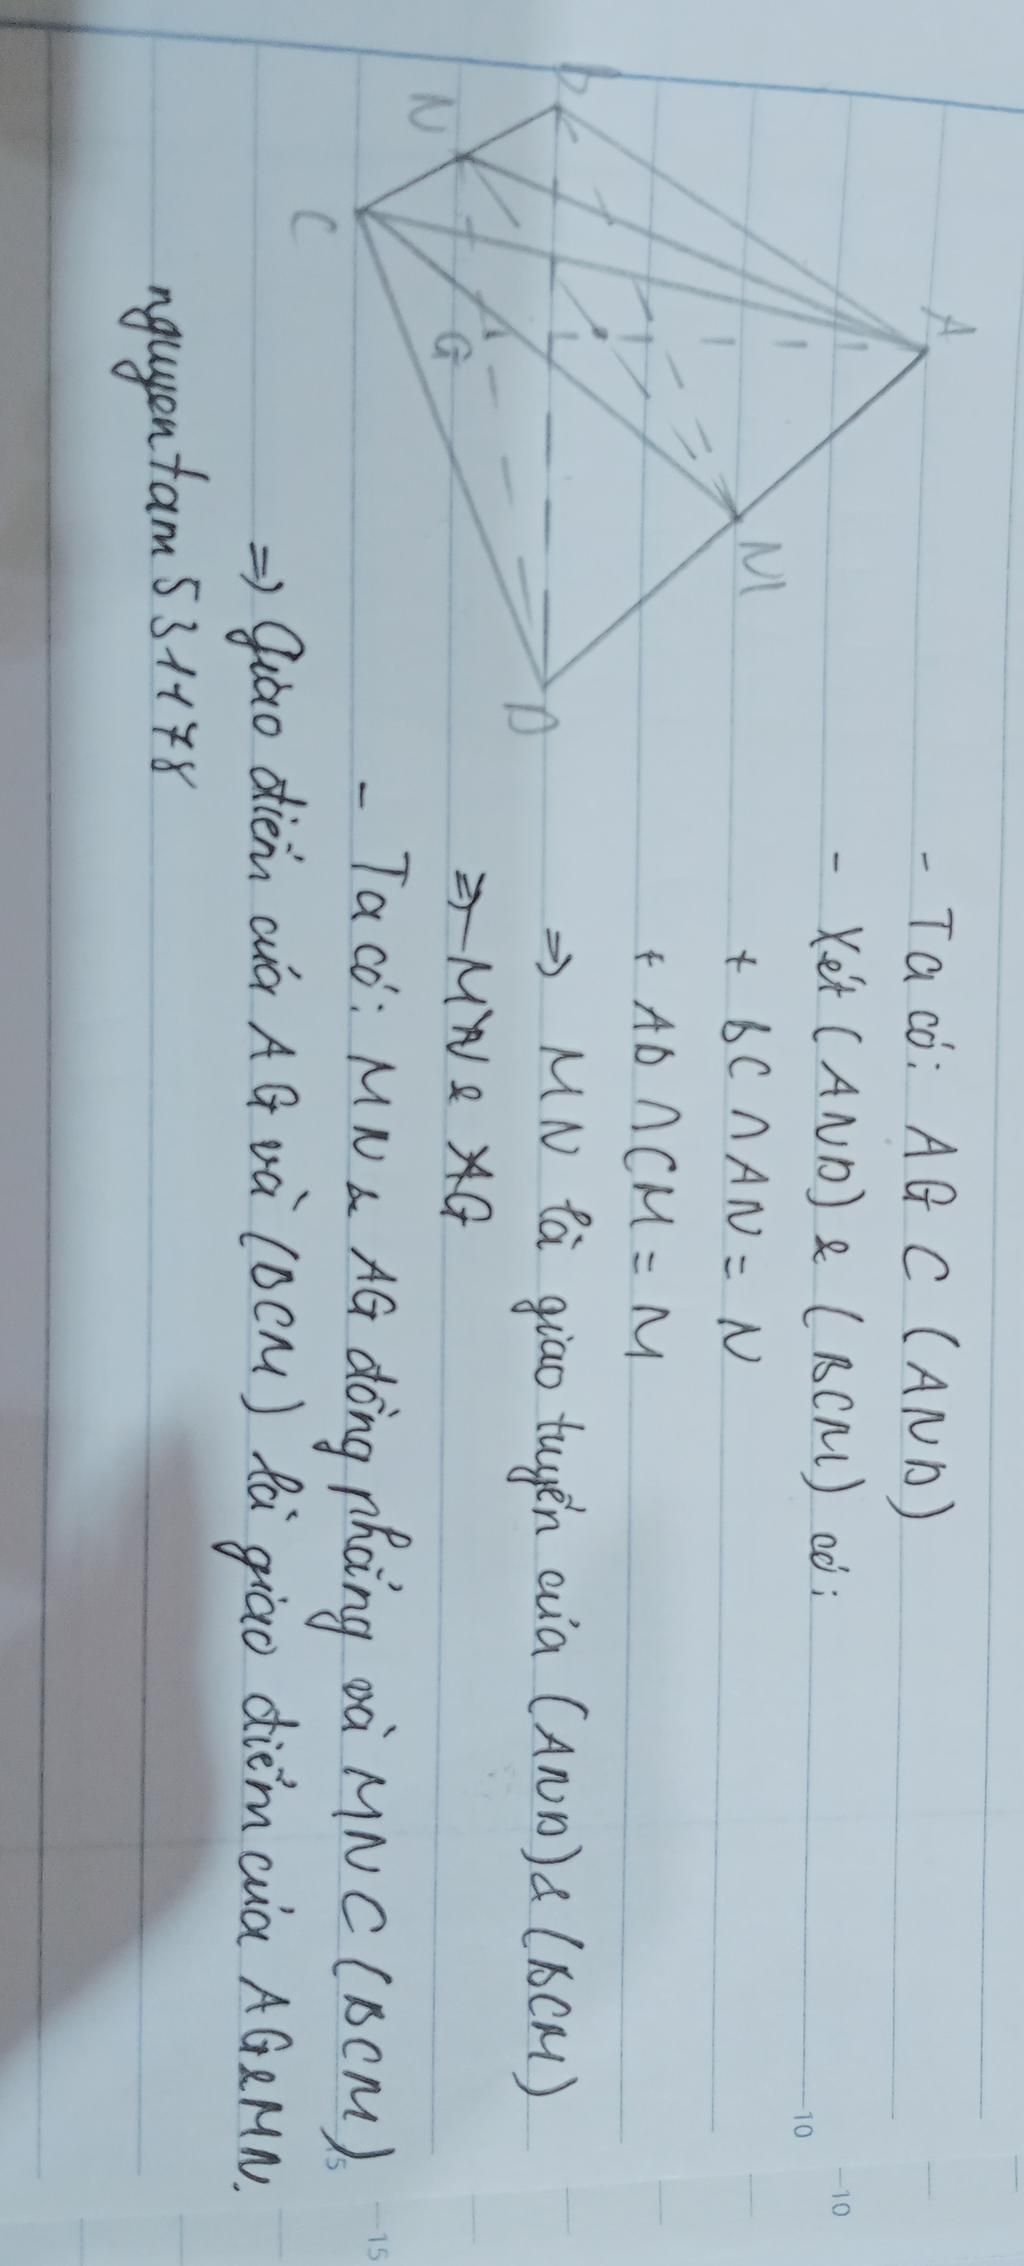 A
B
N
M
C
G
D
- Ta có: AG ⊂ (AND)
- Xét (AND) & (BCM) có:
+ BC ∩ AN = N
+ AD ∩ CM = M
=> MN là giao tuyến của (AND) & (BCM)
=> MN & AG
- Ta có: MN & AG đồng phẳng và MN ⊂ (BCM)
=> Giao điểm của AG và (BCM) là giao điểm của AG & MN.
nguyentam531178
10
10
15
15